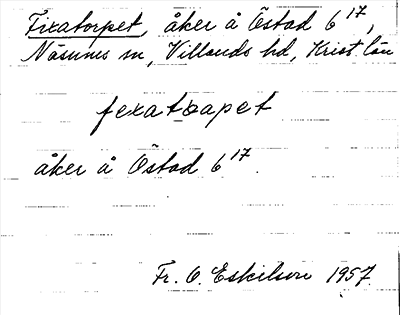 Fixatorpet, åker å Östad 6 17,
Näsums sn, Villands hd, Krist. län
fexatbapet
åker å Östad 6 17.
Fr. O. Eskilson 1957.